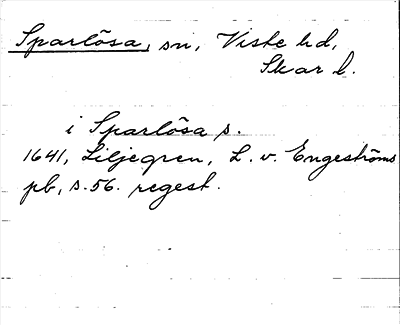 Sparlösa, sn, Viste hd,
Skar l.
i Sparlösa s.
1641, Liljegren, L. v. Engeströms
pb, s. 56. regest.